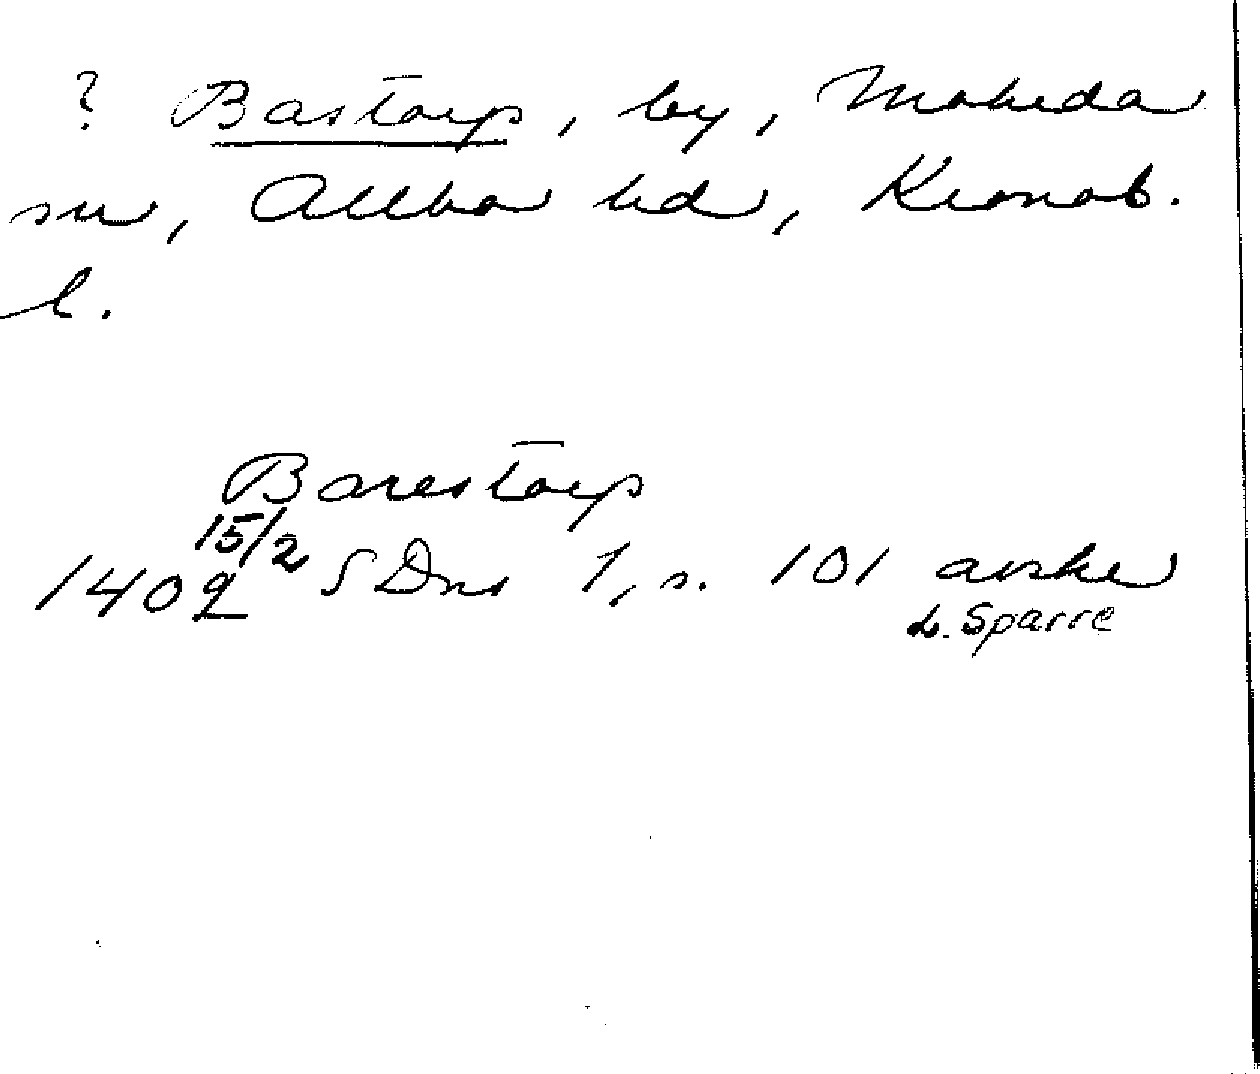 ? Bastorp, by, Moheda
sn, Allbo hd, Kronob.
l.
Barestorp
15/2
1402 SDns 1, s. 101 avskr
L. Sparre